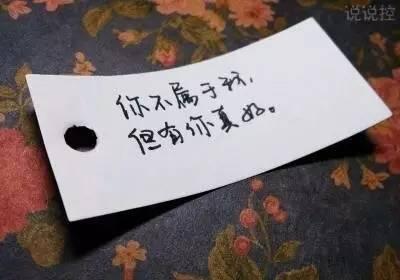 说说控
你不属于我，
但有你真好。